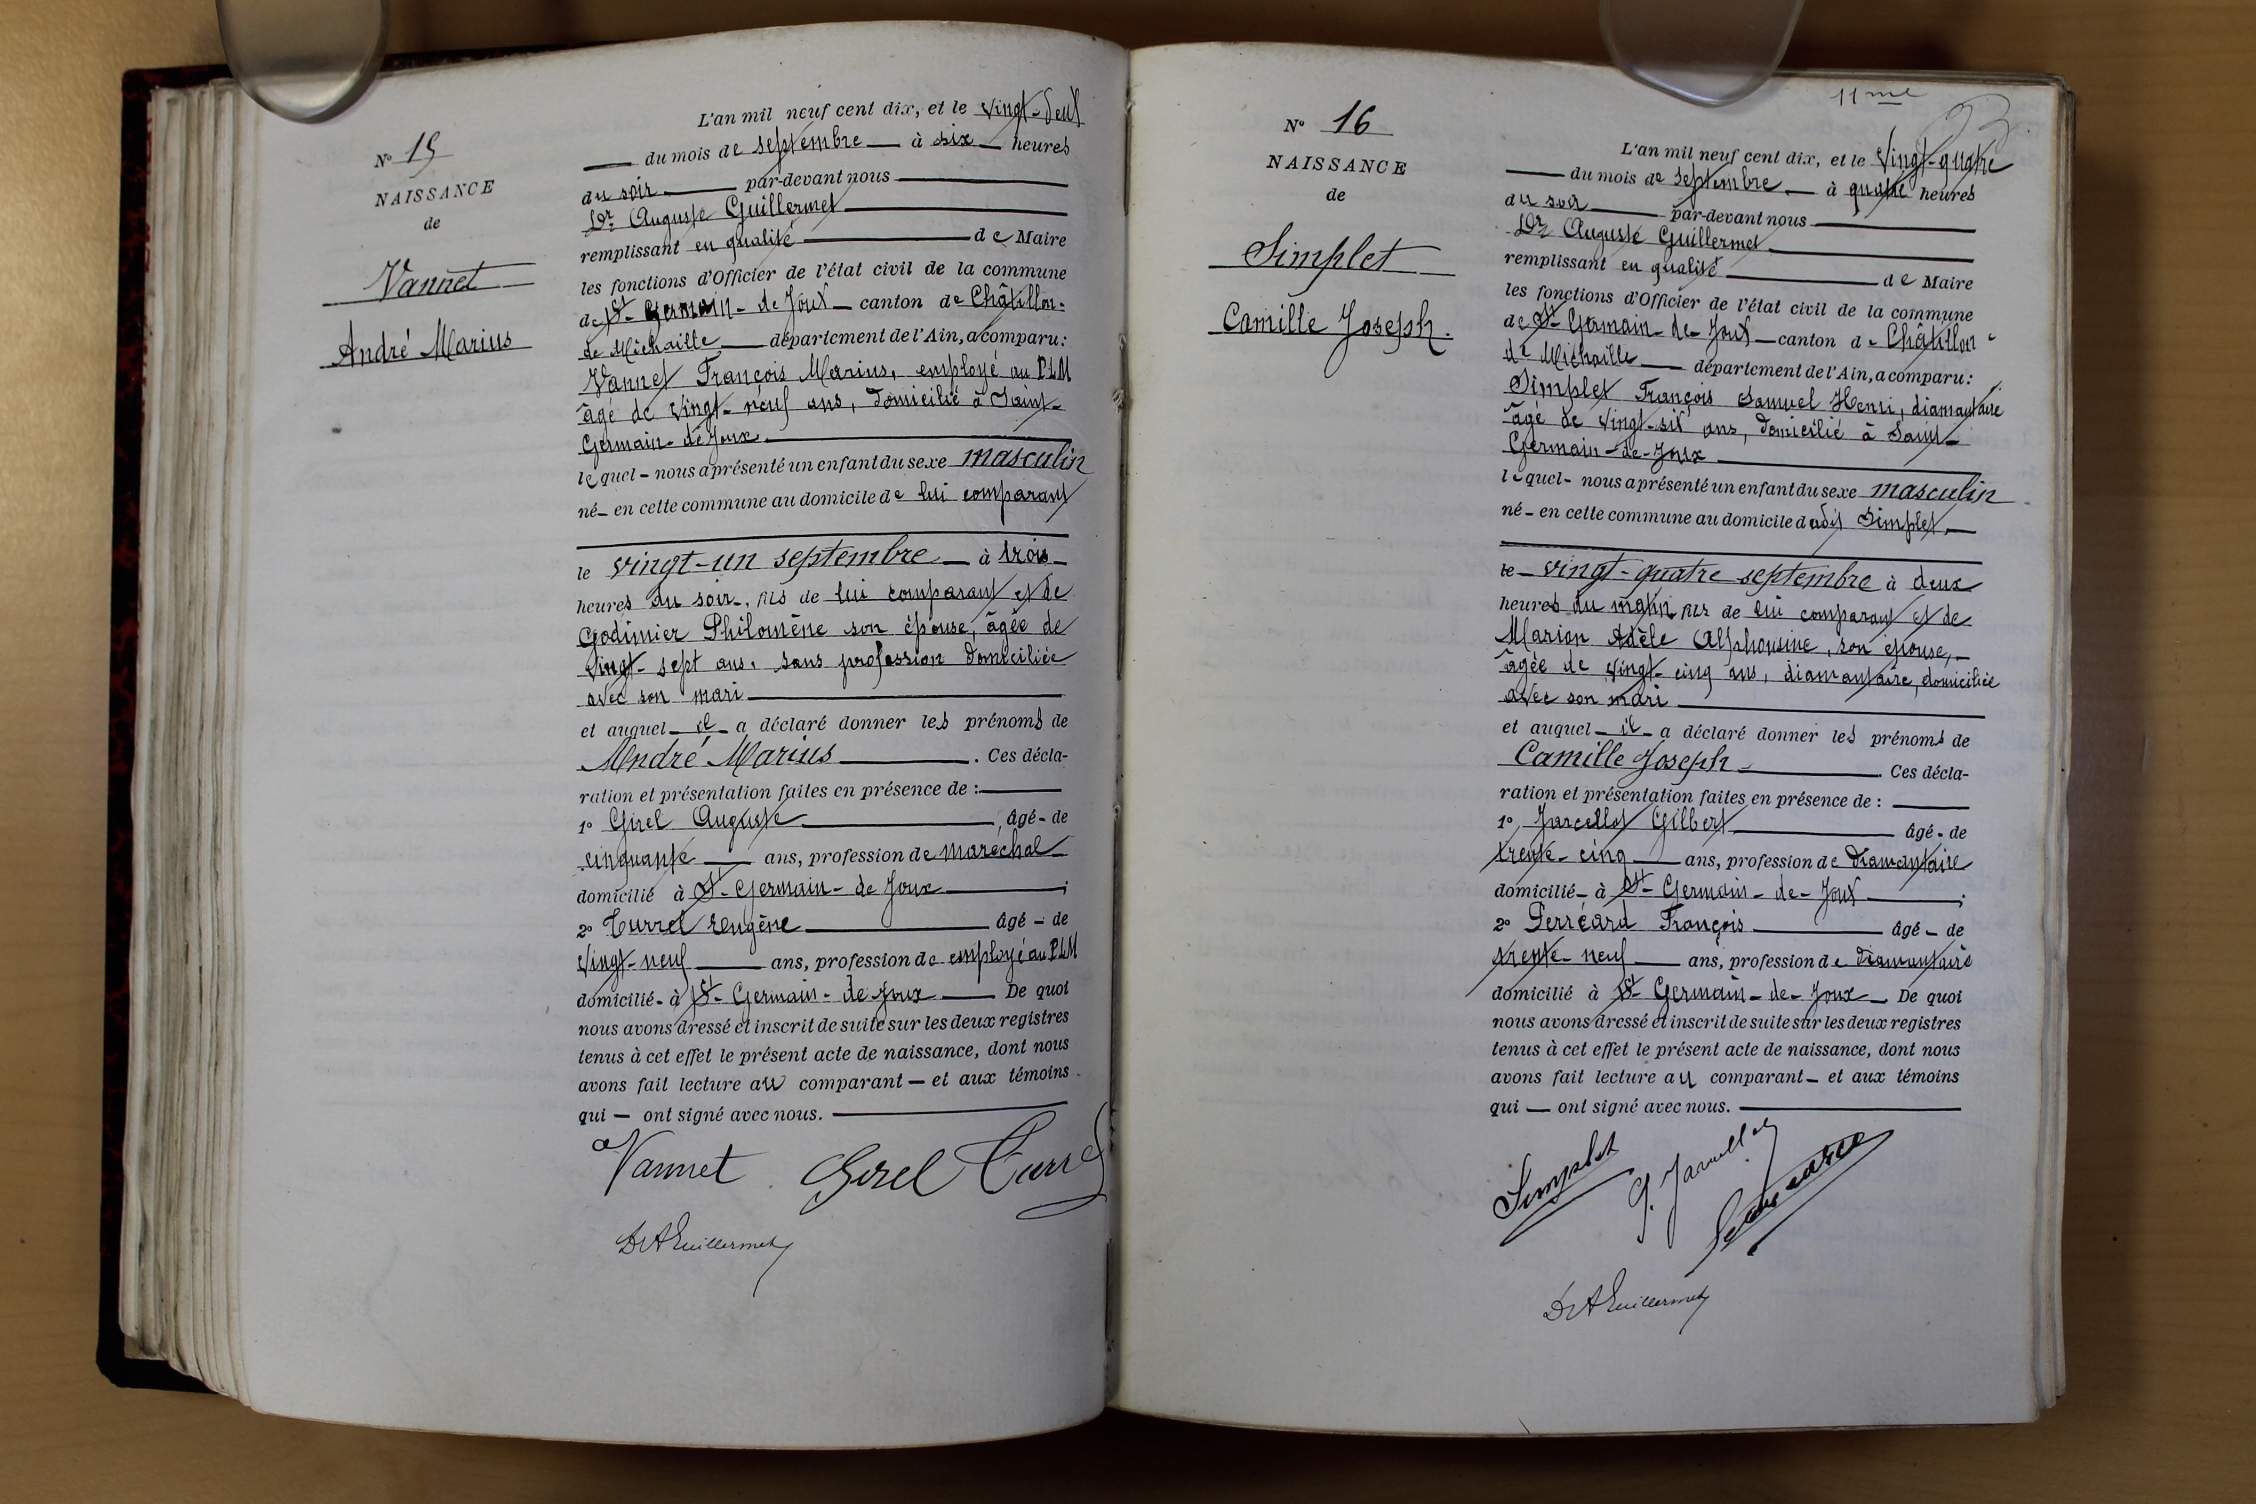 N° 15
NAISSANCE
de
Vannet
André Marius
L'an mil neuf cent dix, et le vingt-deux
du mois de septembre à six heures
du soir par-devant nous
Dr Auguste Guillermet
remplissant en qualité de Maire
les fonctions d'Officier de l'état civil de la commune
de St-Germain-de Joux canton de Châtillon-
de Michaille département de l'Ain, a comparu:
Vannet François Marius, employé au PLM
âgé de vingt-neuf ans, domicilié à Saint-
Germain-de Joux
lequel nous a présenté un enfant du sexe masculin
né en cette commune au domicile de lui comparant
le vingt-un septembre à trois
heures du soir, fils de lui comparant et de
Godimier Philomène son épouse, âgée de
vingt-sept ans, sans profession domiciliée
avec son mari
et auquel il a déclaré donner les prénoms de
André Marius. Ces décla-
ration et présentation faites en présence de :
1° Girel Auguste, âgé de
cinquante ans, profession de maréchal
domicilié à St-Germain-de Joux ;
2° Turrel Eugène âgé de
vingt-neuf ans, profession de employé au PLM
domicilié à St-Germain-de Joux De quoi
nous avons dressé et inscrit de suite sur les deux registres
tenus à cet effet le présent acte de naissance, dont nous
avons fait lecture au comparant et aux témoins
qui ont signé avec nous.
Vannet Girel Turrel
Dr A Guillermet
11me
N° 16
NAISSANCE
de
Simplet
Camille Joseph.
L'an mil neuf cent dix, et le vingt-quatre
du mois de septembre à quatre heures
du soir par-devant nous
Dr Auguste Guillermet
remplissant en qualité de Maire
les fonctions d'Officier de l'état civil de la commune
de St-Germain-de-Joux canton de Châtillon-
de Michaille département de l'Ain, a comparu:
Simplet François Samuel Henri, diamantaire
âgé de vingt-six ans, domicilié à Saint-
Germain-de-Joux
lequel nous a présenté un enfant du sexe masculin
né en cette commune au domicile dudit Simplet,
le vingt-quatre septembre à deux
heures du matin fils de lui comparant et de
Marion Adèle Alphonsine, son épouse,
âgée de vingt-cinq ans, diamantaire, domiciliée
avec son mari
et auquel il a déclaré donner les prénoms de
Camille Joseph. Ces décla-
ration et présentation faites en présence de :
1° Jarcellot Gilbert âgé de
trente-cinq ans, profession de diamantaire
domicilié à St-Germain-de-Joux ;
2° Perréard François âgé de
trente-neuf ans, profession de diamantaire
domicilié à St-Germain-de-Joux De quoi
nous avons dressé et inscrit de suite sur les deux registres
tenus à cet effet le présent acte de naissance, dont nous
avons fait lecture au comparant et aux témoins
qui ont signé avec nous.
Simplet
Dr A Guillermet